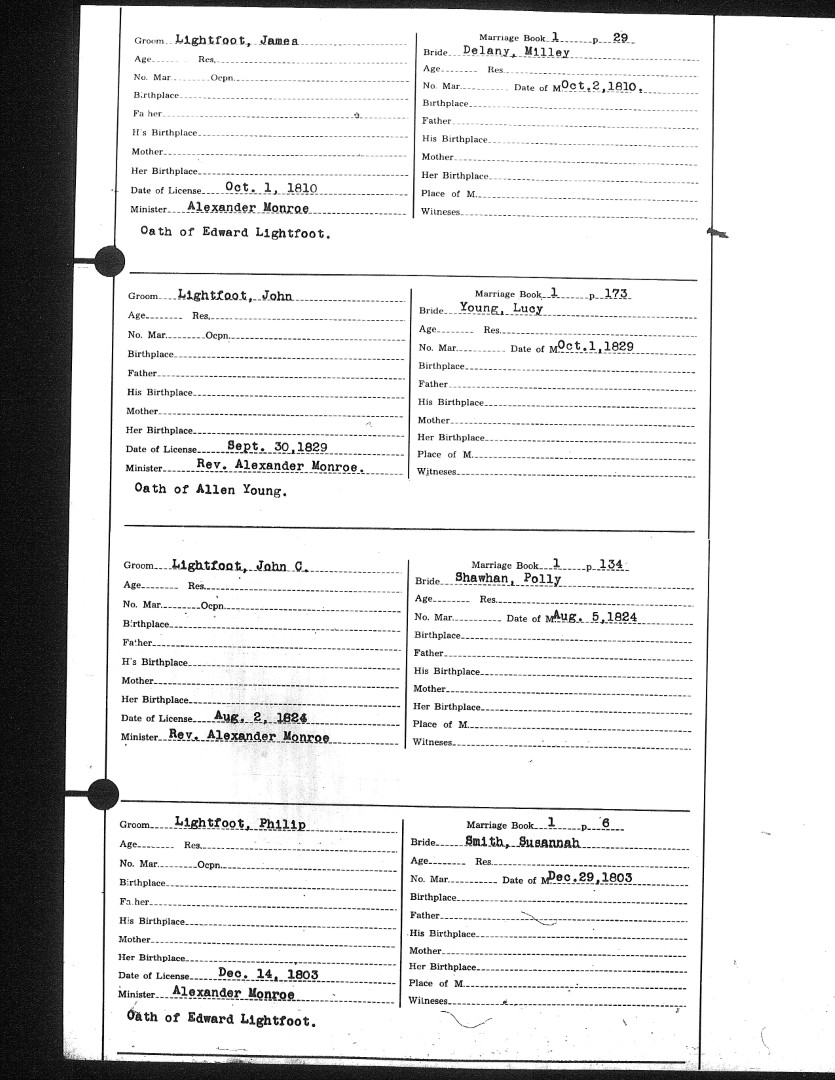 Groom Lightfoot, James
Age Res.
No. Mar Ocpn.
Birthplace
Fa her
H's Birthplace
Mother
Her Birthplace
Date of License Oct. 1, 1810
Minister Alexander Monroe
Oath of Edward Lightfoot.
Marriage Book 1 p 29
Bride Delany, Milley
Age Res.
No. Mar. Date of M Oct.2,1810.
Birthplace
Father
His Birthplace
Mother
Her Birthplace
Place of M.
Witneses
Groom Lightfoot, John
Age Res.
No. Mar. Ocpn.
Birthplace
Father
His Birthplace
Mother
Her Birthplace
Date of License Sept. 30,1829
Minister Rev. Alexander Monroe.
Oath of Allen Young.
Marriage Book 1 p. 173
Bride Young, Lucy
Age Res.
No. Mar. Date of M Oct.1,1829
Birthplace
Father
His Birthplace
Mother
Her Birthplace
Place of M.
Witneses
Groom Lightfoot, John C.
Age Res.
No. Mar. Ocpn.
Birthplace
Father
H's Birthplace
Mother
Her Birthplace
Date of License Aug. 2, 1824
Minister Rev. Alexander Monroe
Marriage Book 1 p. 134
Bride Shawhan, Polly
Age Res.
No. Mar. Date of M Aug. 5,1824
Birthplace
Father
His Birthplace
Mother
Her Birthplace
Place of M.
Witneses
Groom Lightfoot, Philip
Age Res.
No. Mar. Ocpn.
Birthplace
Fa.her
His Birthplace
Mother
Her Birthplace
Date of License Dec. 14, 1803
Minister Alexander Monroe
Oath of Edward Lightfoot.
Marriage Book 1 p 6
Bride Smith, Susannah
Age Res.
No. Mar. Date of M Dec.29,1803
Birthplace
Father
His Birthplace
Mother
Her Birthplace
Place of M.
Witneses